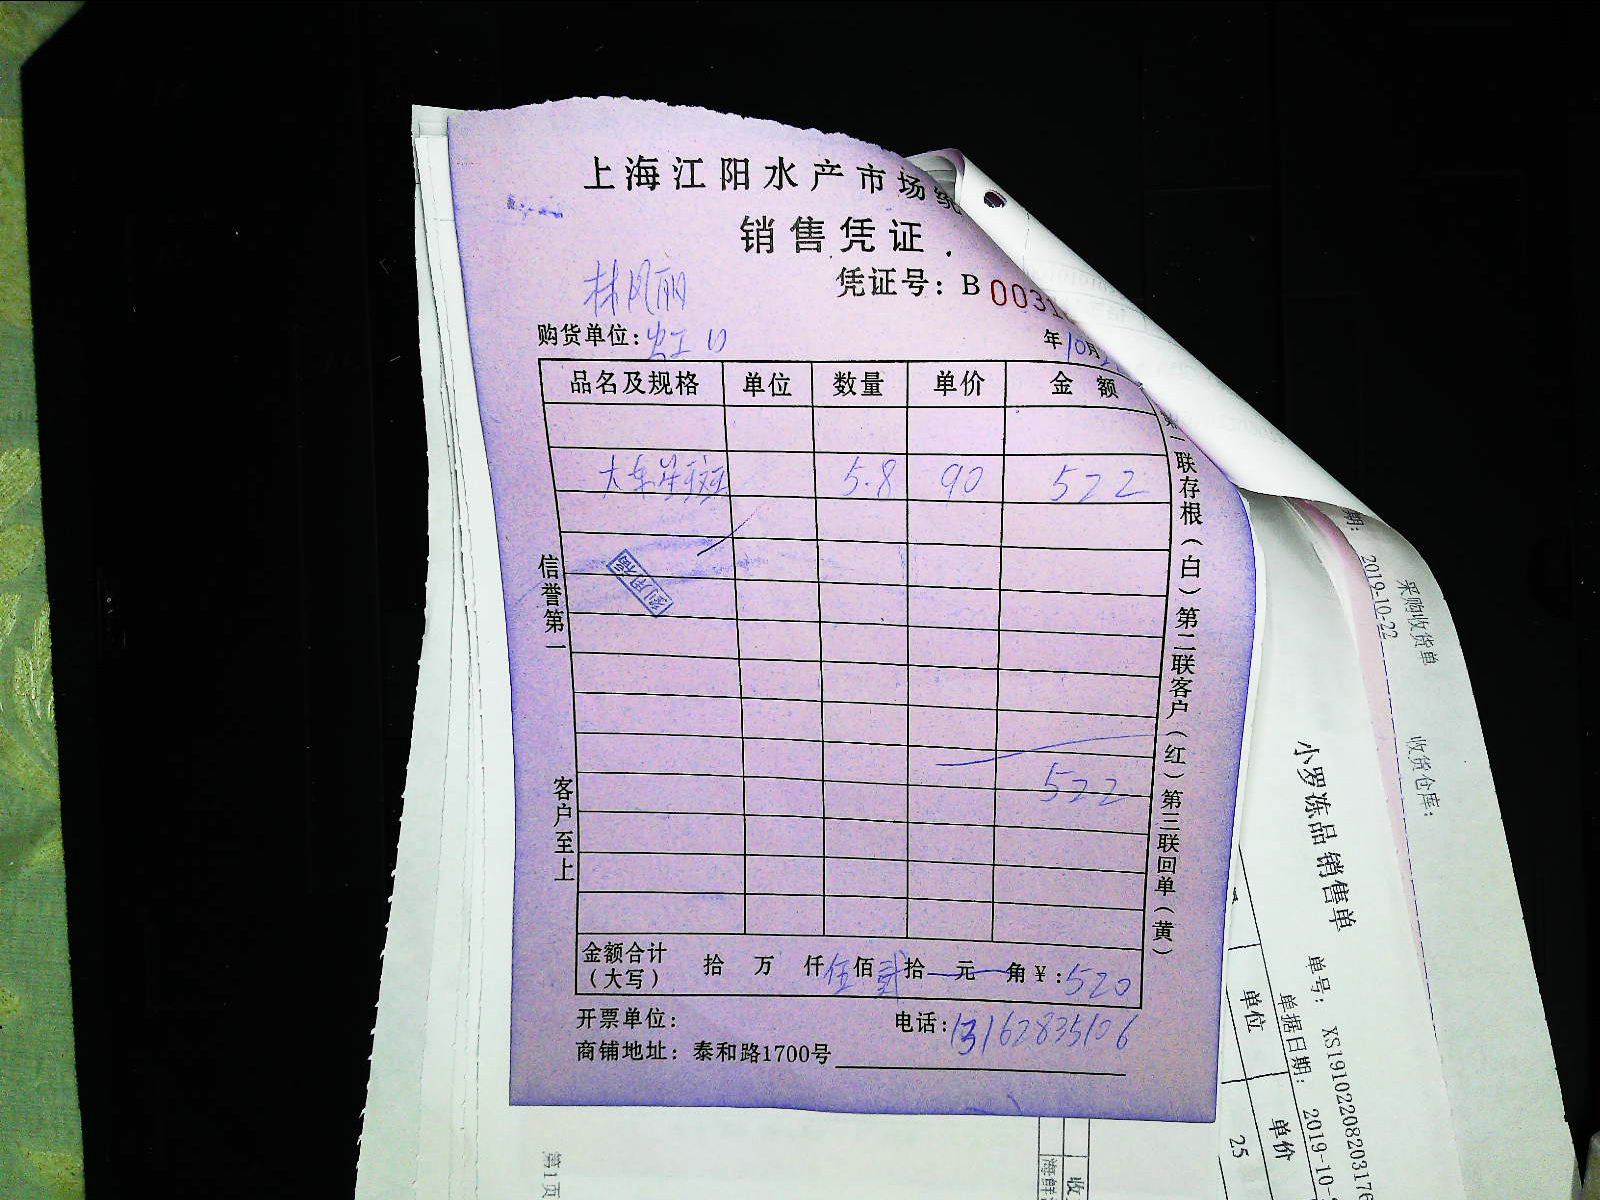 上海江阳水产市场统
销售凭证
凭证号：B 0031
林凤丽
购货单位：虹口
年10月
品名及规格 单位 数量 单价 金额
大东星斑 5.8 90 522
522
信誉第一
客户至上
第一联存根（白）第二联客户（红）第三联回单（黄）
金额合计（大写） 拾 万 仟伍佰贰拾 元 角￥：520
开票单位：
电话：13162835106
商铺地址：泰和路1700号
采购收货单
期：2019-10-22
收货仓库：
小罗冻品销售单
单号：XS19102208203176
单据日期：2019-10-
单位
单价
25
第1页
海鲜
收